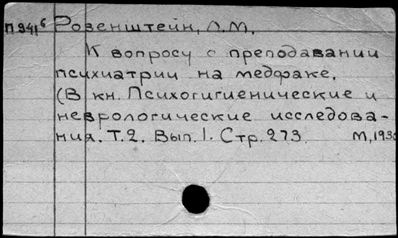 П941б Розенштейн, Л.М.
К вопросу о преподавании
психиатрии на медфаке.
(В кн. Психогигиенические и
неврологические исследова-
ния. Т.2. Вып. 1. Стр. 273. М, 193